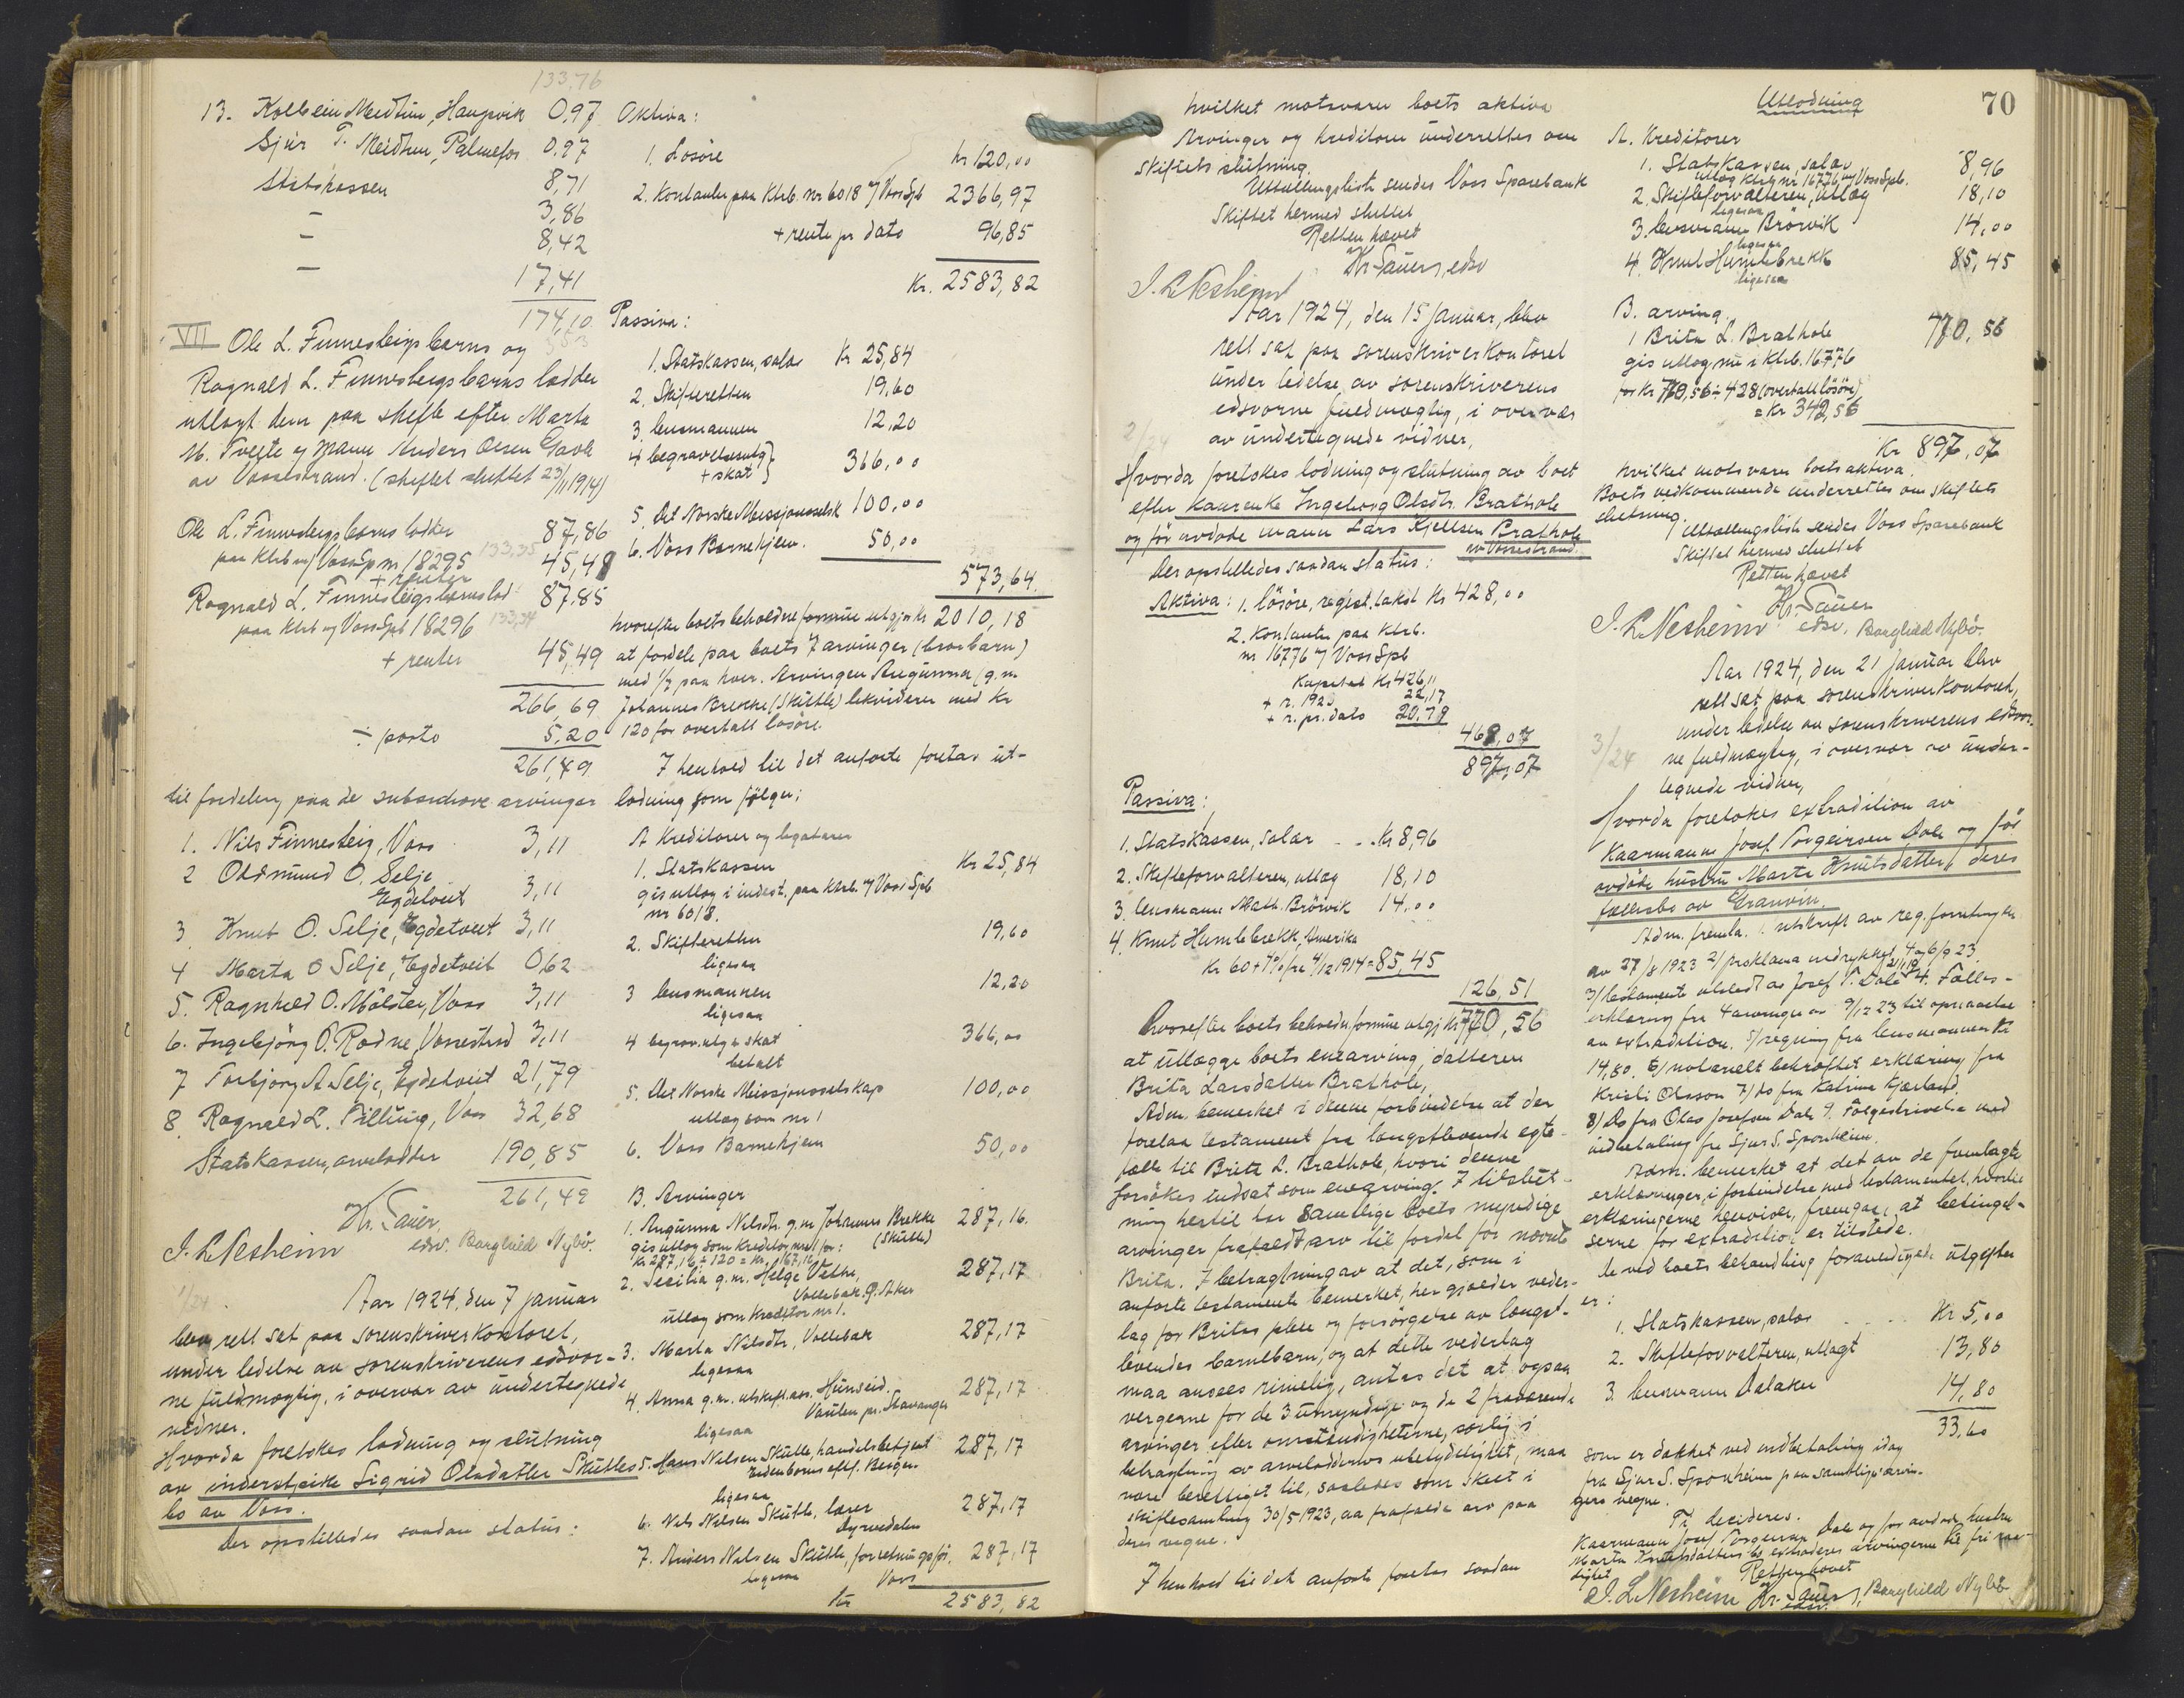 133.76
13. Kolbein Meidtun, Haugsvik 0.97
Sjur T. Meidtun, Palmefos 0.97
Statskassen 8,71
— 3,86
— 8,42
— 17,41
174,10
VII Ole L. Finnesleigs barns og
Ragnald L. Finnesleigs barns lodder
utlagt dem paa skifte efter Marta
M. Tveite og mann Anders Olsen Gavle
av Vossestrand. (skiftet sluttet 23/11 1914)
Ole L. Finnesleigs barns lodder 87,86
paa Ktrb m/ Voss Spb nr 18295 133,35 45,49
+ renter
Ragnald L. Finnesleigs barns lod 87.85
paa Ktrb m/ Voss Spb 18296 133,34
+ renter 45,49
266,69
÷ porto 5,20
261,49
til fordeling paa de subsidiære arvinger
1. Nils Finnesleig, Voss 3,11
2 Oddmund O. Selje
Egdetveit 3,11
3 Knut O. Selje, Egdetveit 3,11
4 Marta O Selje, Egdetveit 0,62
5. Ragnhild O. Mølster, Voss 3,11
6. Ingebjørg O. Rødne, Vossestrd 3,11
7 Torbjørg A. Selje, Egdetveit 21,79
8. Ragnald L. Filling, Voss 32,68
Statskassen, arvelodder 190,85
261,49
Kr. Sauer,
edsv. Borghild Nybø.
I. L. Nesheim
1/24. Aar 1924, den 7 januar
blev rett sat paa sorenskriverkontoret,
under ledelse av sorenskriverens edsvor-
ne fuldmægtig, i overvær av undertegnede
vidner.
Hvorda foretokes lodning og slutning
av inderstpike Sigrid Olsdatter Skutles
bo av Voss.
Der opstilledes saadan status:
Aktiva:
1. Løsøre kr 120,00
2. Kontanter paa Ktrb. nr 6018 m/ Voss Spb 2366,97
+ rente pr dato 96,85
Kr. 2583,82
Passiva:
1. Statskassen, salær Kr 25,84
2. Skifteretten 19,60
3. lensmannen 12,20
4 begravelsesutg.
+ skat } 366,00
5. Det Norske Missjonsselsk 100,00
6. Voss Barnehjem. 50,00
573,64.
hvorefter boets beholdne formue utgjør kr 2010,18
at fordele paa boets 7 arvinger (brorbarn)
med 1/7 paa hver. Arvingen Angunna (g.m.
Johannes Brekke (Skutle) likviderer med kr
120 for overtatt løsøre.
I henhold til det anførte foretas ut-
lodning som følger:
A Kreditorer og legatarer
1. Statskassen Kr 25,84
gis utlæg i indest. paa Ktrb. m/ Voss Spb
nr 6018.
2. Skifteretten 19,60
ligesaa
3 lensmannen 12,20
ligesaa
4 begrav.utg & skat 366,00
betalt
5. Det Norske Missjonsselskap 100,00
utlæg som nr 1
6. Voss Barnehjem 50,00
B. Arvinger
1. Angunna Nilsdtr. g.m. Johannes Brekke 287,16.
(Skutle)
gis utlæg som Kreditor nr 1 for:
Kr 287,16 ÷ 120 = kr. 167,16
2. Secilia g.m. Helge Vethe, 287,17
utlæg som Kreditor nr 1.
3. Marta Nilsdtr, Vollebæk 287,17
ligesaa
4. Anna g.m. utskift.ass. Hunseid. 287,17
Vaulen pr. Stavanger
ligesaa
5. Hans Nilsen Skutle, handelsbetjent 287,17
ligesaa
6. Nils Nilsen Skutle, lærer 287,17
Dyrvedalen
7. Anders Nilsen Skutle, forretningsfør. 287,17
ligesaa Voss
Kr 2583,82
hvilket motsvarer boets aktiva
Arvinger og kreditorer underrettes om
skiftets slutning.
Uttællingsliste sendes Voss Sparebank
Skiftet hermed sluttet
Retten hævet
Kr. Sauer, edsv
I. L. Nesheim
Aar 1924, den 15 januar, blev
rett sat paa sorenskriverkontoret
under ledelse av sorenskriverens
edsvorne fuldmægtig, i overvær
2/24 av undertegnede vidner,
Hvorda foretokes lodning og slutning av boet
efter kaarenke Ingeborg Olsdtr. Brathole
og før avdøde mann Lars Kjellsen Brathole
av Vossestrand.
Der opstilledes saadan status:
Aktiva: 1. løsøre, regist. takst kr 428,00
2. Kontanter paa Ktrb.
nr 16776 m/ Voss Spb
Kapital kr 426,11
+ r. 1923 22,17
+ r. pr. dato 20,79
469,07
897,07
Passiva:
1. Statskassen, salær - - Kr 8,96
2. Skifteforvalteren, utlæg 18,10
3. lensmann Math. Brørvik 14,00
4. Knut Humlebrekk, Amerika
Kr. 60 + 4% fra 4/12 1914 = 85,45
126,51
Hvorefter boets beholdn formue utgj kr 770,56
at utlægge boets enearving, datteren
Brita Larsdatter Brathole,
Adm. bemerket i denne forbindelse at der
forelaa testament fra længstlevende egte-
fælle til Brita L. Brathole, hvori denne
forsøkes indsat som enearving. I tilslut-
ning hertil har samtlige boets myndige
arvinger frafaldt arv til fordel for nævnte
Brita. I betragtning av at det, som i
anførte testamente bemerket, her gjælder veder-
lag for Britas pleie og forsørgelse av længst-
levendes barnebarn, og at dette vederlag
maa ansees rimelig, antas det at ogsaa
vergerne for de 3 umyndige og de 2 fraværende
arvinger efter omstændigheterne, særlig i
betragtning av arveloddernes ubetydelighet, maa
være berettiget til, saaledes som skeet i
skiftesamling 30/5 1923, aa frafalde arv paa
deres vegne.
I henhold til det anførte foretas saadan
Utlodning 70
A. Kreditorer
1. Statskassen, salær 8,96
utlæg Ktrb nr 16776 m/ Voss Spb.
2. Skifteforvalteren, utlæg 18,10
ligesaa
3. lensmann Brørvik 14,00
ligesaa
4. Knut Humlebrekk 85,45
ligesaa
B. arving.
1 Brita L. Brathole 770,56
gis utlæg nu i Ktrb. 16776
for Kr 770,56 ÷ 428 (overtatt løsøre)
= Kr 342,56
Kr 897,07
hvilket motsvarer boets aktiva.
Boets vedkommende underrettes om skiftets
slutning.
Uttællingsliste sendes Voss Sparebank
Skiftet hermed sluttet
Retten hævet
Kr. Sauer
I. L. Nesheim edsv. Borghild Nybø.
Aar 1924, den 21 januar blev
rett sat paa sorenskriverkontoret,
under ledelse av sorenskriverens edsvor-
3/24 ne fuldmægtig, i overvær av under-
tegnede vidner,
Hvorda foretokes extradition av
kaarmann Josef Torgeirsen Dale og før
avdøde hustru Marta Knutsdatters deres
fællesbo av Granvin.
Adm. fremla. 1. utskrift av reg.forretning
av 27/8 1923 2/ proklama indrykket 4 og 6/9 23.
3/ testamente utstedt av Josef T. Dale 21/1 19 4. Fælles-
erklæring fra 4 arvinger av 9/12 23 til opnaaelse
av extradition. 5/ regning fra lensmannen kr
14,80. 6/ notarielt bekræftet erklæring fra
Kristi Olsson 7/ do fra Katrina Kjerland.
8/ Do fra Olav Josefsen Dale 9. Følgeskrivelse med
indbetaling fra Sjur S. Sponheim.
Adm. bemerket at det av de fremlagte
erklæringer, i forbindelse med testamentet, hvortil
erklæringerne henviser, fremgaar, at betingel-
serne for extradition er tilstede.
De ved boets behandling foranledigede utgifter
er:
1. Statskassen, salær - - - Kr 5,00
2. Skifteforvalteren, utlagt 13,80
3 lensmann Dalaker 14,80
33,60
som er dækket ved indbetaling idag
fra Sjur S. Sponheim paa samtlige arvin-
gers vegne.
Ti decideres.
Kaarmann Josef Torgeirsen Dale og før avdøde hustru
Marta Knutsdatters bo extraderes arvingerne til fri raa-
dighet
Retten hævet
I. L. Nesheim Kr. Sauer edsv. Borghild Nybø